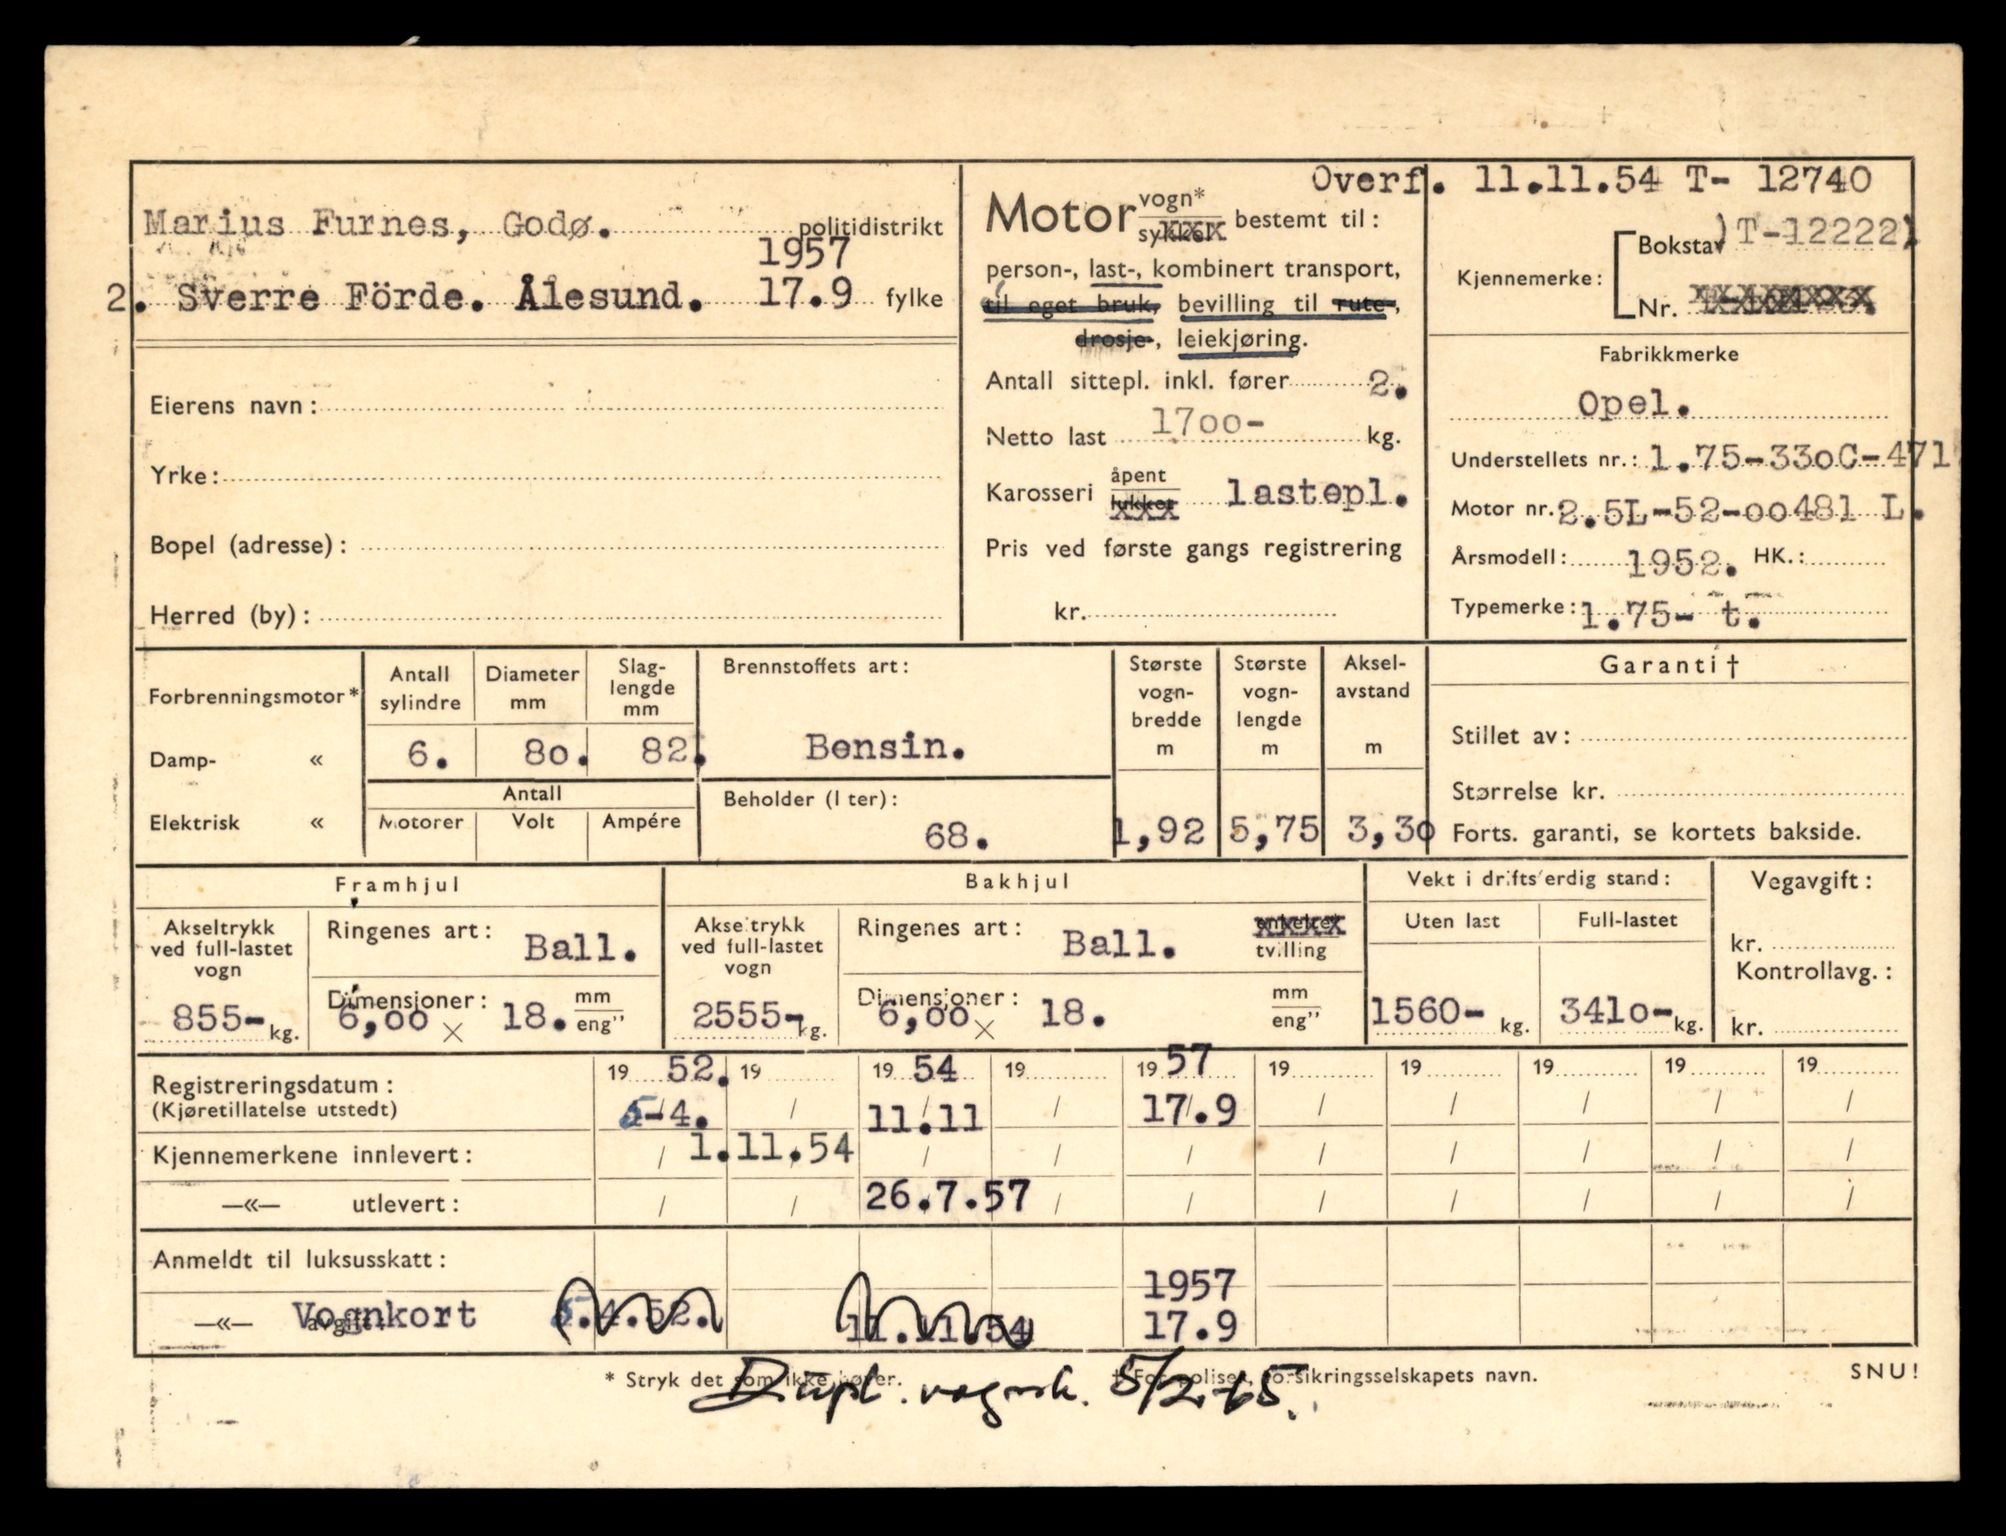 Overf. 11.11.54 T- 12740
Marius Furnes, Godø. politidistrikt
1957
2. Sverre Förde. Ålesund. 17.9 fylke
Eierens navn:
Yrke:
Bopel (adresse):
Herred (by):
Motor vogn* sykkel bestemt til:
person-, last-, kombinert transport,
til eget bruk, bevilling til rute-,
drosje-, leiekjøring.
Antall sittepl. inkl. fører 2.
Netto last 1700- kg.
Karosseri åpent lukket lastepl.
Pris ved første gangs registrering
kr.
Kjennemerke: Bokstav )T-12222)
Nr.
Fabrikkmerke
Opel.
Understellets nr.: 1.75-330C-471
Motor nr. 2.5L-52-00481 L.
Årsmodell: 1952. HK.:
Typemerke: 1.75- t.
Forbrenningsmotor*
Damp- «
Elektrisk «
Antall sylindre
Diameter mm
Slaglengde mm
6. 80. 82.
Antall
Motorer Volt Ampére
Brennstoffets art:
Bensin.
Beholder (l ter):
68.
Største vogn-bredde m
Største vogn-lengde m
Aksel-avstand m
1,92 5,75 3,30
Garanti†
Stillet av:
Størrelse kr.
Forts. garanti, se kortets bakside.
Framhjul
Akseltrykk ved full-lastet vogn
855- kg.
Ringenes art: Ball.
Dimensjoner: mm
6,00 x 18. eng"
Bakhjul
Akseltrykk ved full-lastet vogn
2555- kg.
Ringenes art: Ball. enkelte tvilling
Dimensjoner: mm
6,00 x 18. eng"
Vekt i driftsferdig stand:
Uten last Full-lastet
1560- kg. 3410- kg.
Vegavgift:
kr.
Kontrollavg.:
kr.
Registreringsdatum: 19 52. 19 19 54 19 19 57 19 19 19 19 19
(Kjøretillatelse utstedt) 5-4. / 11.11 / 17.9 / / / / /
Kjennemerkene innlevert: / 1.11.54 / / / / / / / /
—«— utlevert: / / 26.7.57 / / / / / / /
Anmeldt til luksusskatt:
1957
—«— avgift: Vognkort 5.4.52. 11.11.54 17.9
* Stryk det som ikke hører. † For polisen, forsikringsselskapets navn. SNU!
Dupl. vognk. 5/2-65.